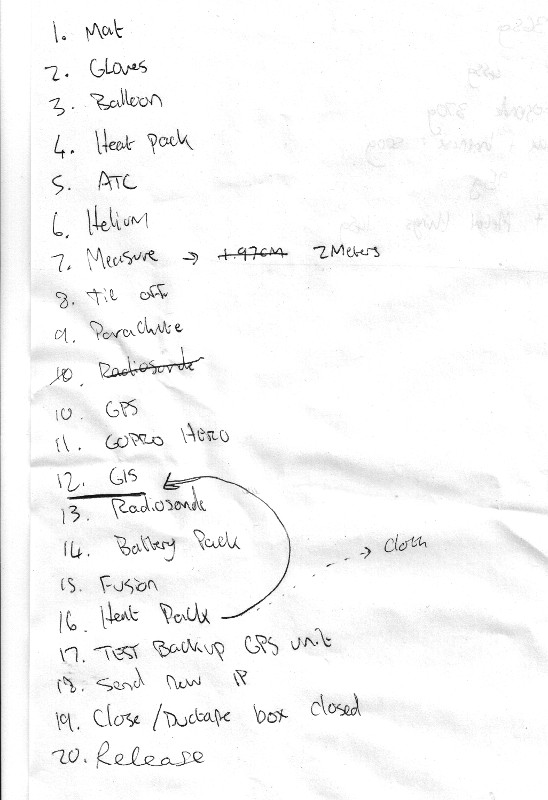 1. Mat
2. Gloves
3. Balloon
4. Heat pack
5. ATC
6. Helium
7. Measure → 1.97cm 2Meters
8. tie off
9. Parachute
10. Radiosonde
10. GPS
11. GOPRO HERO
12. GIS
13. Radiosonde
14. Battery Pack
→ Cloth
15. Fusion
16. Heat Pack
17. TEST Backup GPS unit
18. Send new IP
19. Close/Ductape box closed
20. Release